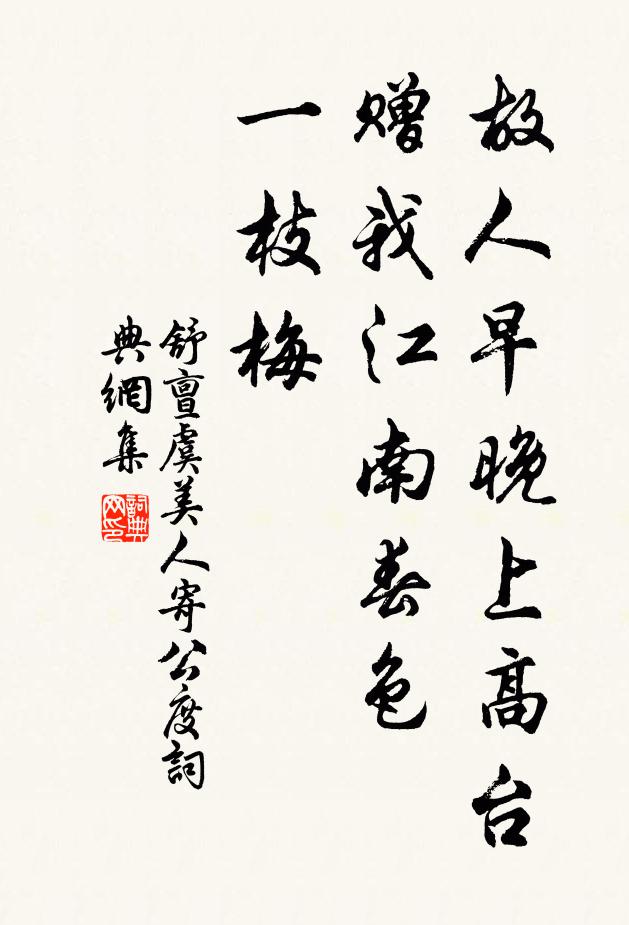 故人早晚上高台
赠我江南春色
一枝梅
舒亶虞美人寄公度詞
典網集
詞典
网印